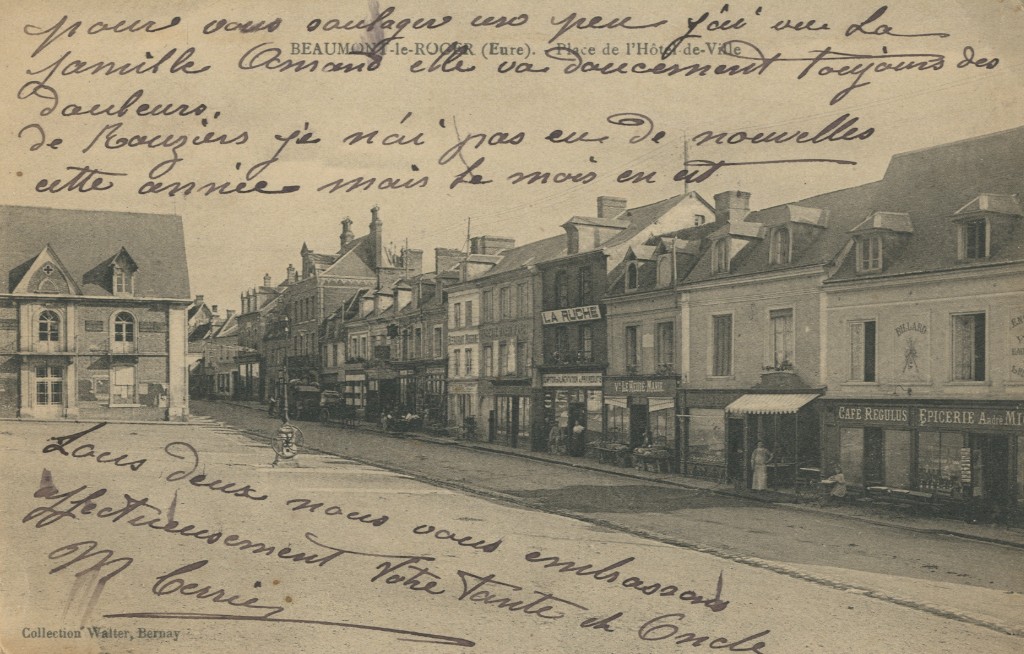 pour vous soulager un peu j'ai vu la
BEAUMONT-le-ROGER (Eure). - Place de l'Hôtel-de-Ville
famille Amand elle va doucement toujours des
douleurs.
de Rouziers je n'ai pas eu de nouvelles
cette année mais le mois en est
LA RUCHE
Vve LE REIDE-MABIL
BILLARD
CAFÉ REGULUS EPICERIE André MI
Tous deux nous vous embrassons
affectueusement Votre Tante et Oncle
M Cerrier
Collection Walter, Bernay